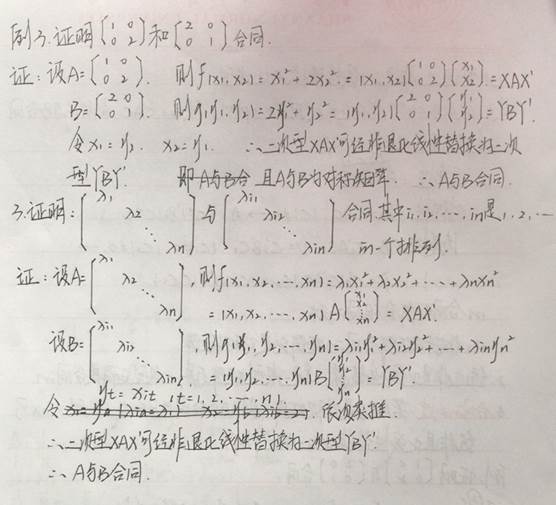 例3.证明[1 0 0 2]和[2 0 0 1]合同.
证:设A=[1 0 0 2]. 则f(x1,x2)=x1²+2x2²=(x1,x2)[1 0 0 2][x1 x2]=XAX'
B=[2 0 0 1]. 则g(y1,y2)=2y1²+y2²=(y1,y2)[2 0 0 1][y1 y2]=YBY'.
令x1=y2. x2=y1. ∴二次型XAX'可经非退化线性替换为二次
型YBY'. 即A与B合 且A与B为对称矩阵. ∴A与B合同.
3.证明:[λ1 λ2 ⋱ λn]与[λi1 λi2 ⋱ λin]合同.其中i1,i2,…,in是1,2,…
n一个排列.
证:设A=[λ1 λ2 ⋱ λn],则f(x1,x2,…,xn)=λ1x1²+λ2x2²+…+λnxn²
=(x1,x2,…,xn)A[x1 x2 ⋮ xn]=XAX'.
设B=[λi1 λi2 ⋱ λin],则g(y1,y2,…,yn)=λi1y1²+λi2y2²+…+λinyn²
=(y1,y2,…,yn)B[y1 y2 ⋮ yn]=YBY'.
yt=xit (t=1,2,…,n)
令 依次类推
∴二次型XAX'可经非退化线性替换为二次型YBY'.
∴A与B合同.